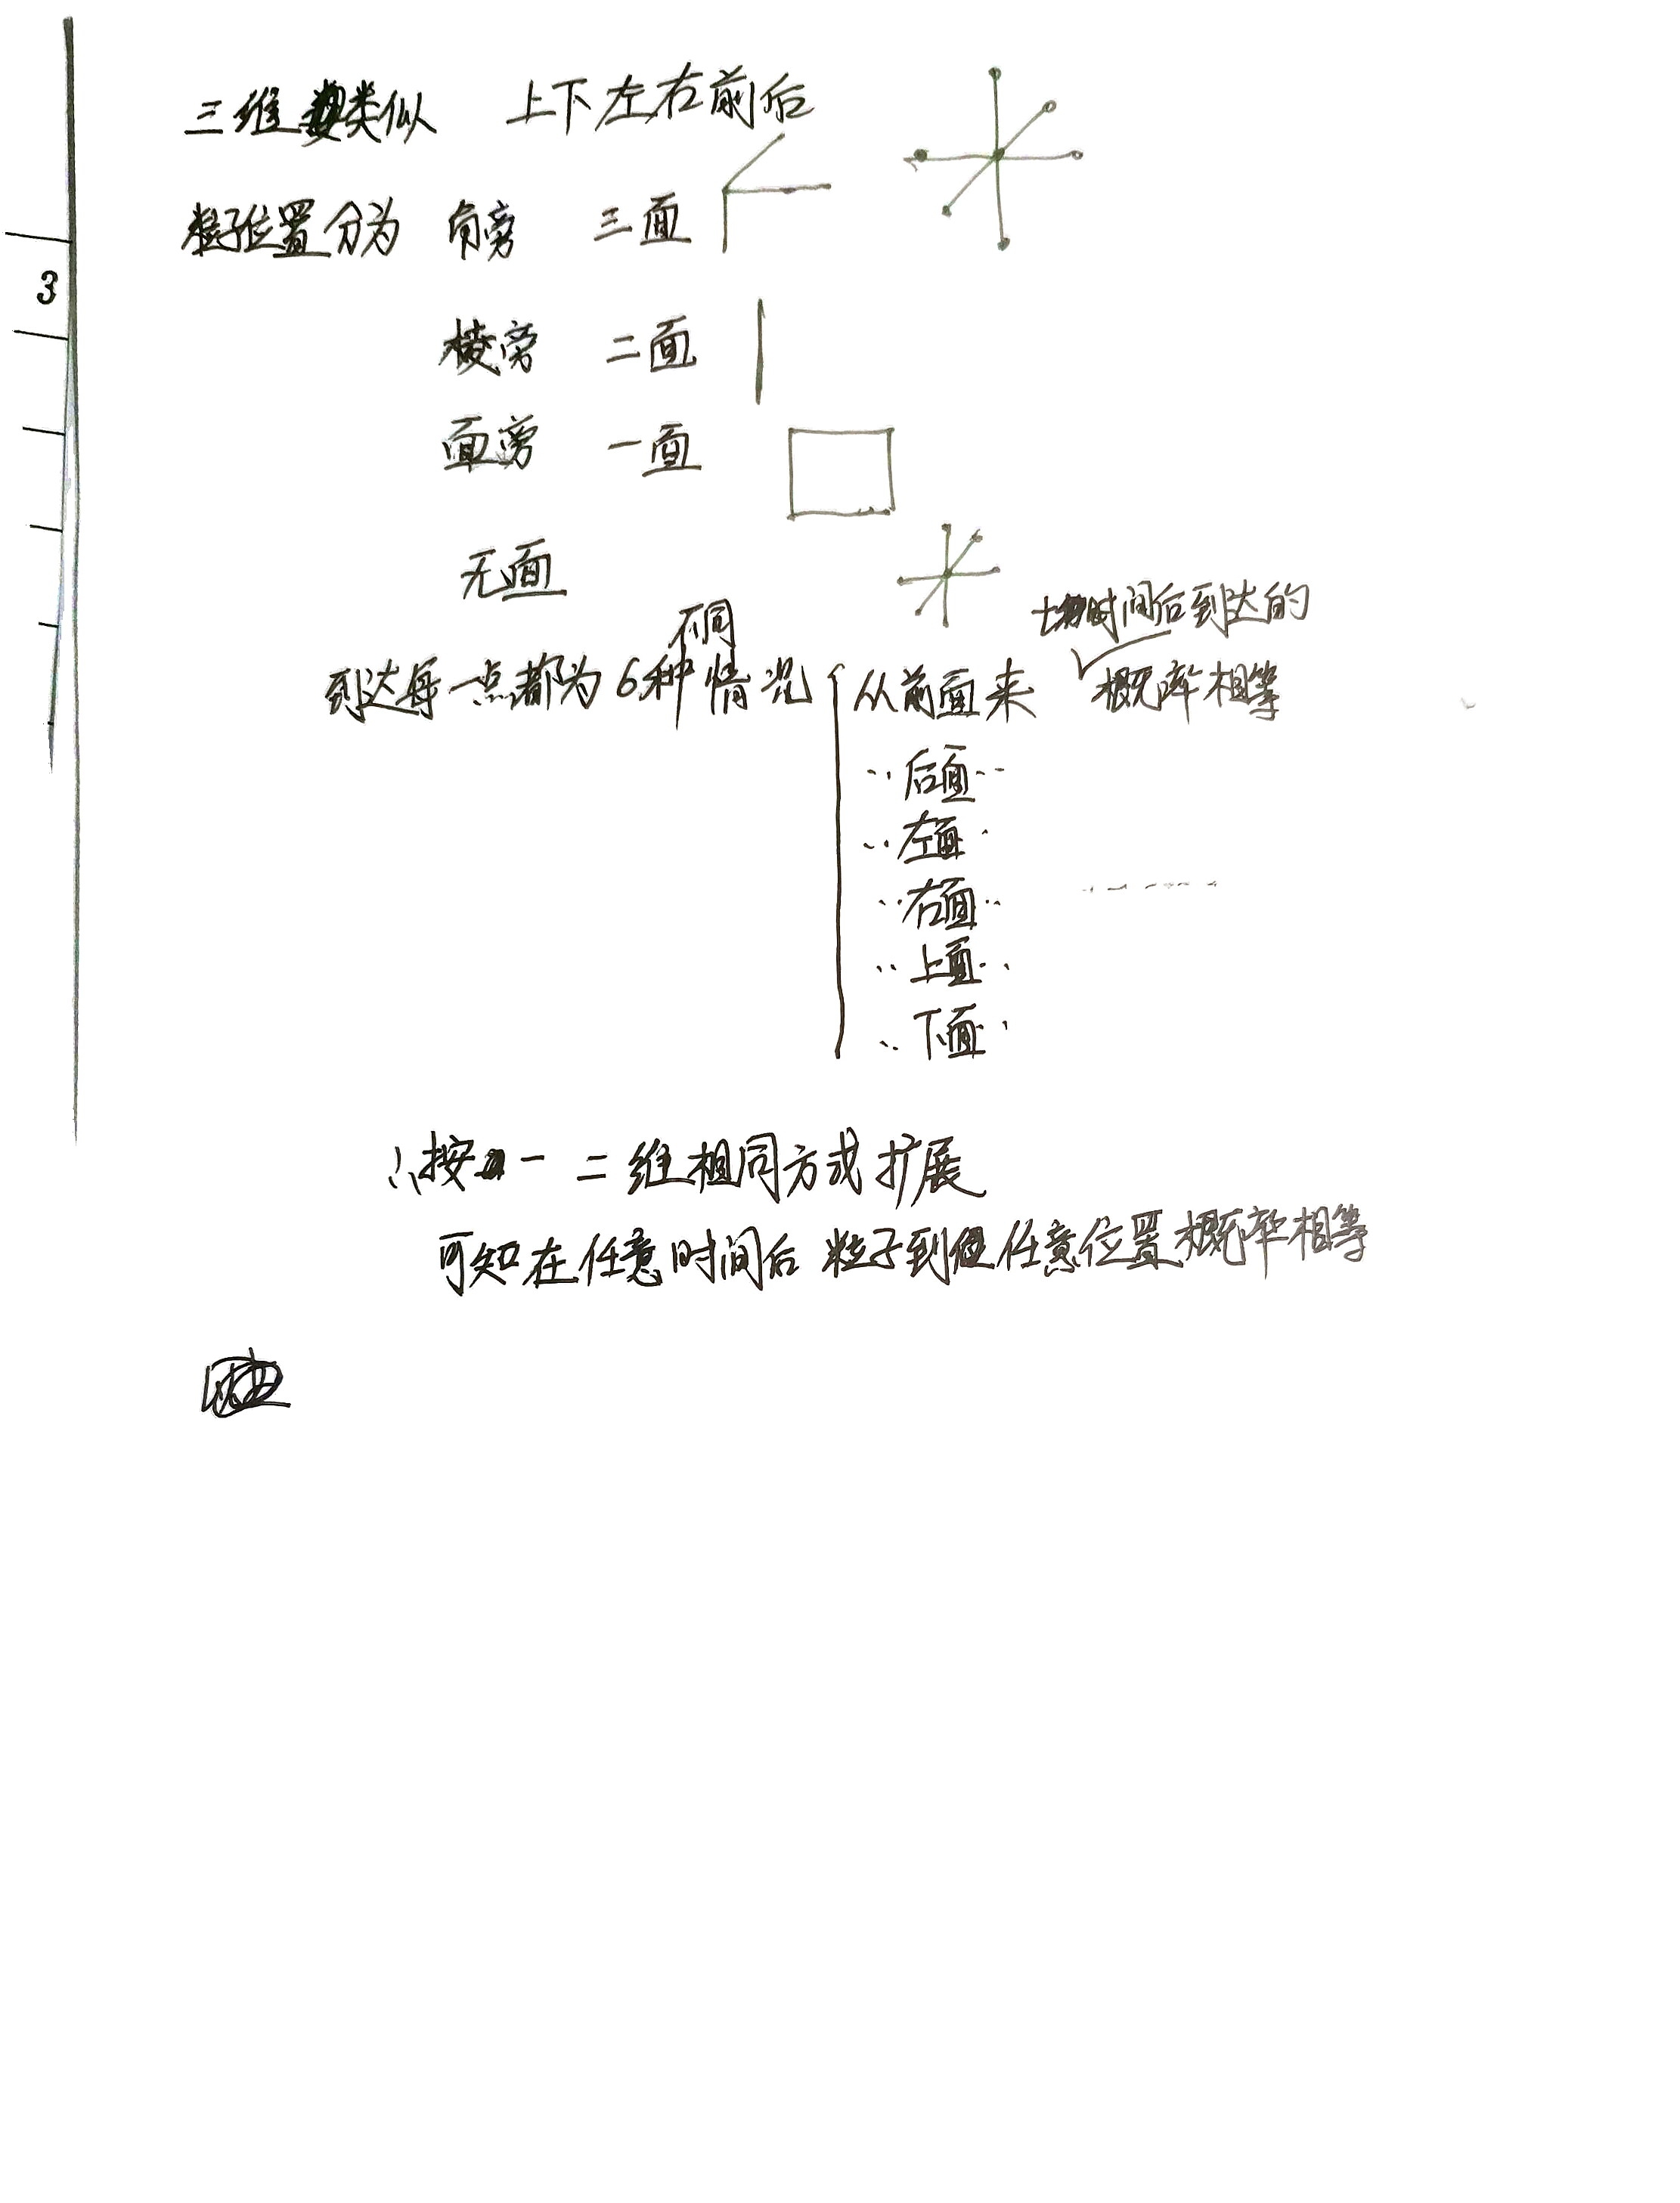 三维类似 上下左右前后
粒子位置分为 角旁 三面
3
棱旁 二面
面旁 一面
无面
时间后到达的
不同
到达每一点都为6种情况 从前面来 概率相等
‥后面‥
‥左面‥
‥右面‥
‥上面‥
‥下面‥
∴按一 二维相同方式扩展
可知在任意时间后 粒子到任意位置概率相等